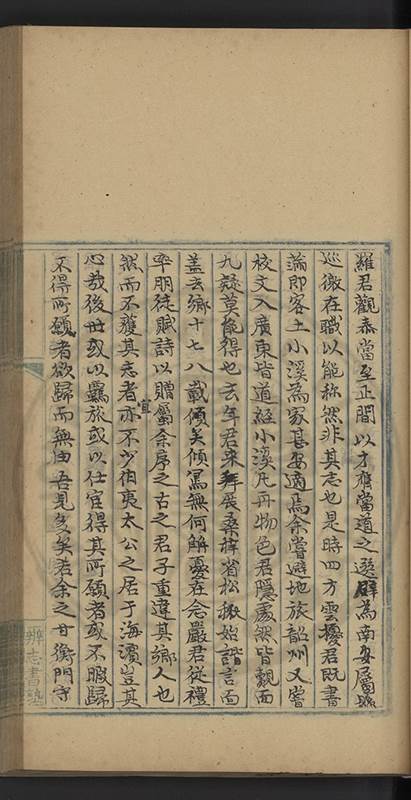 羅君觀泰當至正間以才應當道之選辟為南安屬縣
巡徼在職以能称然非其志也是時四方雲擾君既書
滿即客土小溪為家甚安適焉余嘗避地旅韶州又嘗
校文入廣東皆道經小溪凡再物色君隱處然皆覿面
九疑莫能得也去年君来拜展桑梓省松楸始諧言面
盖去鄉十七八載傾矣傾寫無何解襄在余嚴君從禮
率朋徒賦詩以贈屬余序之古之君子重違其鄉人也
然而不獲其志者亦宜不少伯夷太公之居于海濱豈其
心哉後世或以羈旅或以仕宦得其所願者或不暇歸
不得所願者欲歸而無由吾見多矣若余之甘衡門守
辨志書塾